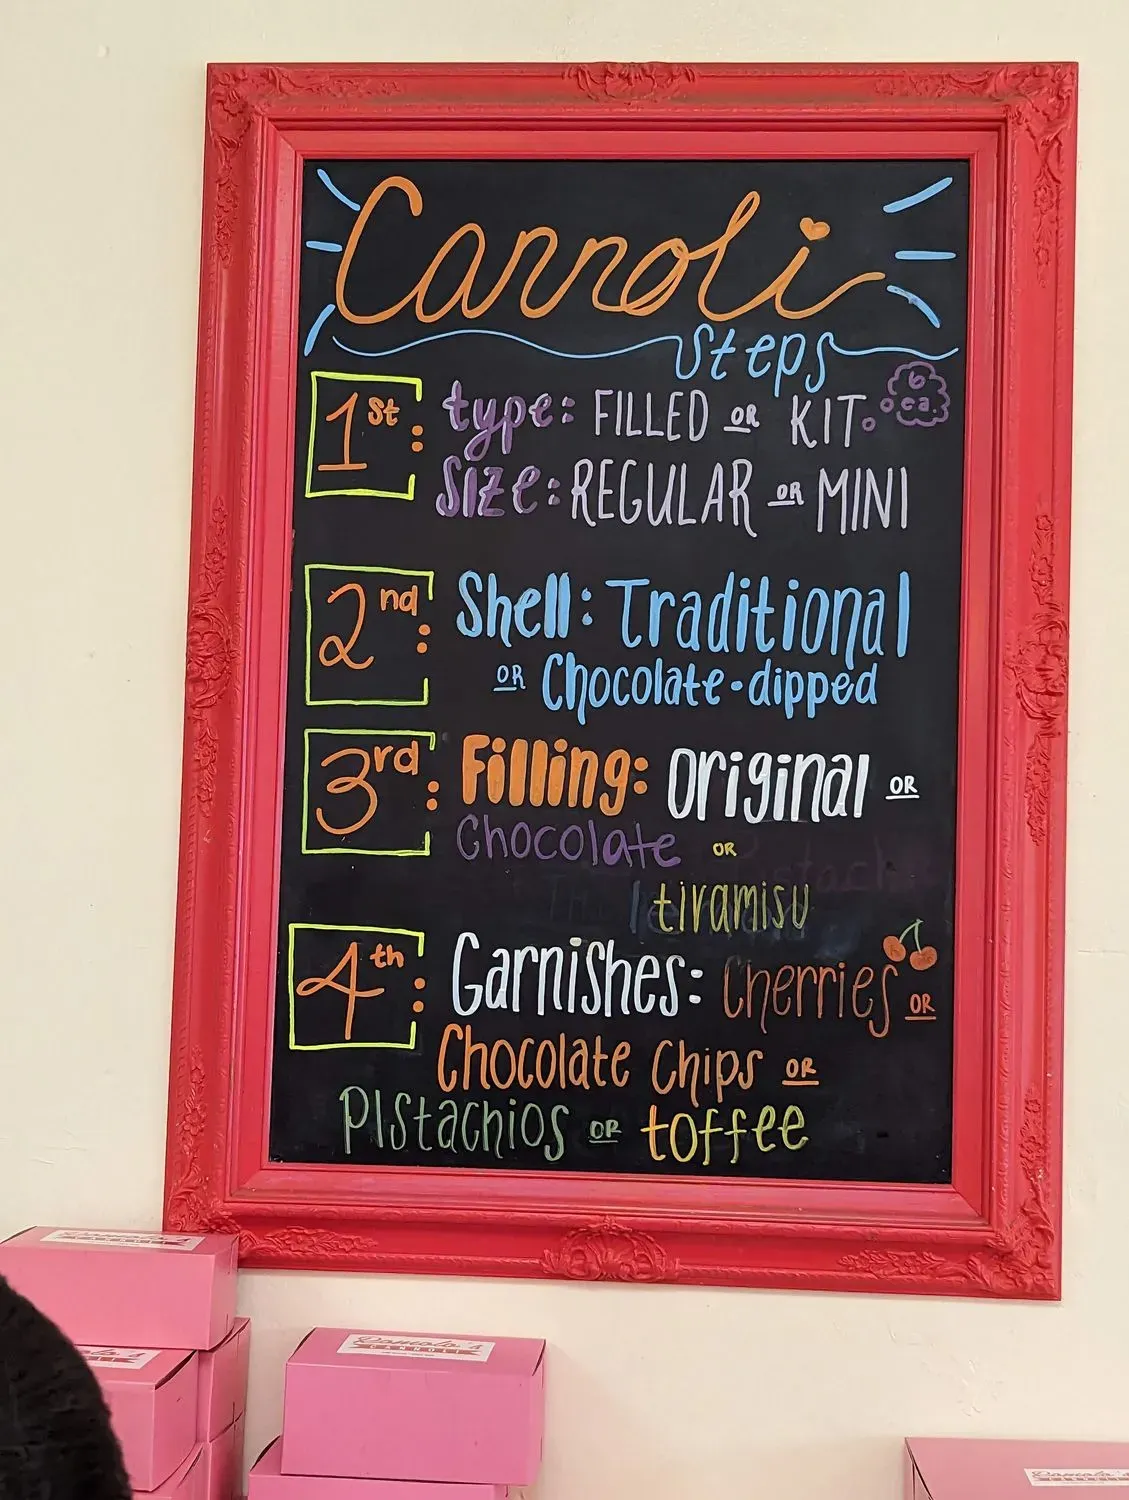 Cannoli
Steps
1st: type: FILLED OR KIT 6 ea.
Size: REGULAR OR MINI
2nd: Shell: Traditional
OR Chocolate-dipped
3rd: Filling: Original OR
Chocolate OR
tiramisu
4th: Garnishes: Cherries OR
Chocolate Chips OR
Pistachios OR toffee
Romolo's
CANNOLI